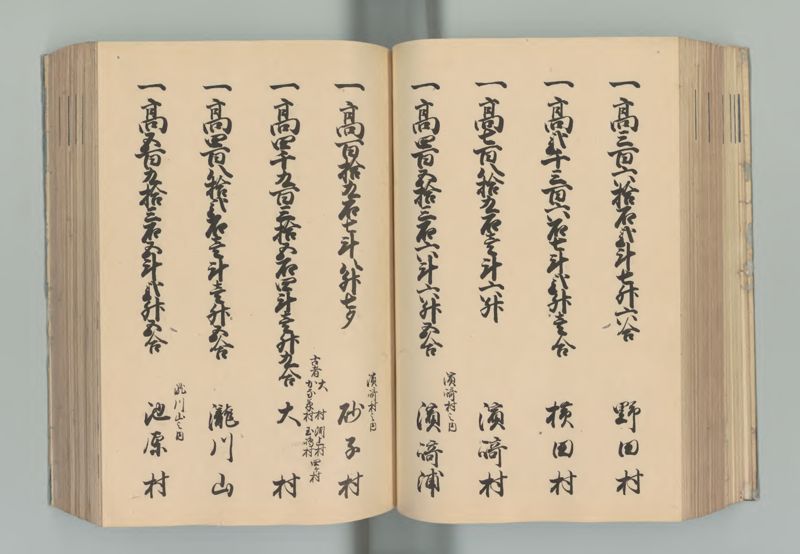 一高三百六拾石弐斗七升六合 野田村
一高弐千三百六石七斗弐升壱合 横田村
一高七百八拾九石壱斗六升 濱﨑村
濱﨑村之内
一高四百五拾三石六斗六升五合 濱﨑浦
濱﨑村之内
一高百拾九石七斗八升七夕 砂子村
古者大村 渕上村
かなな村 玉嶋村 四ヶ村
一高四千九百三拾五石四斗壱升九合 大村
一高四百八拾弐石壱斗壱升五合 瀧川山
瀧川山之内
一高五百九拾三石五斗弐升五合 池原村